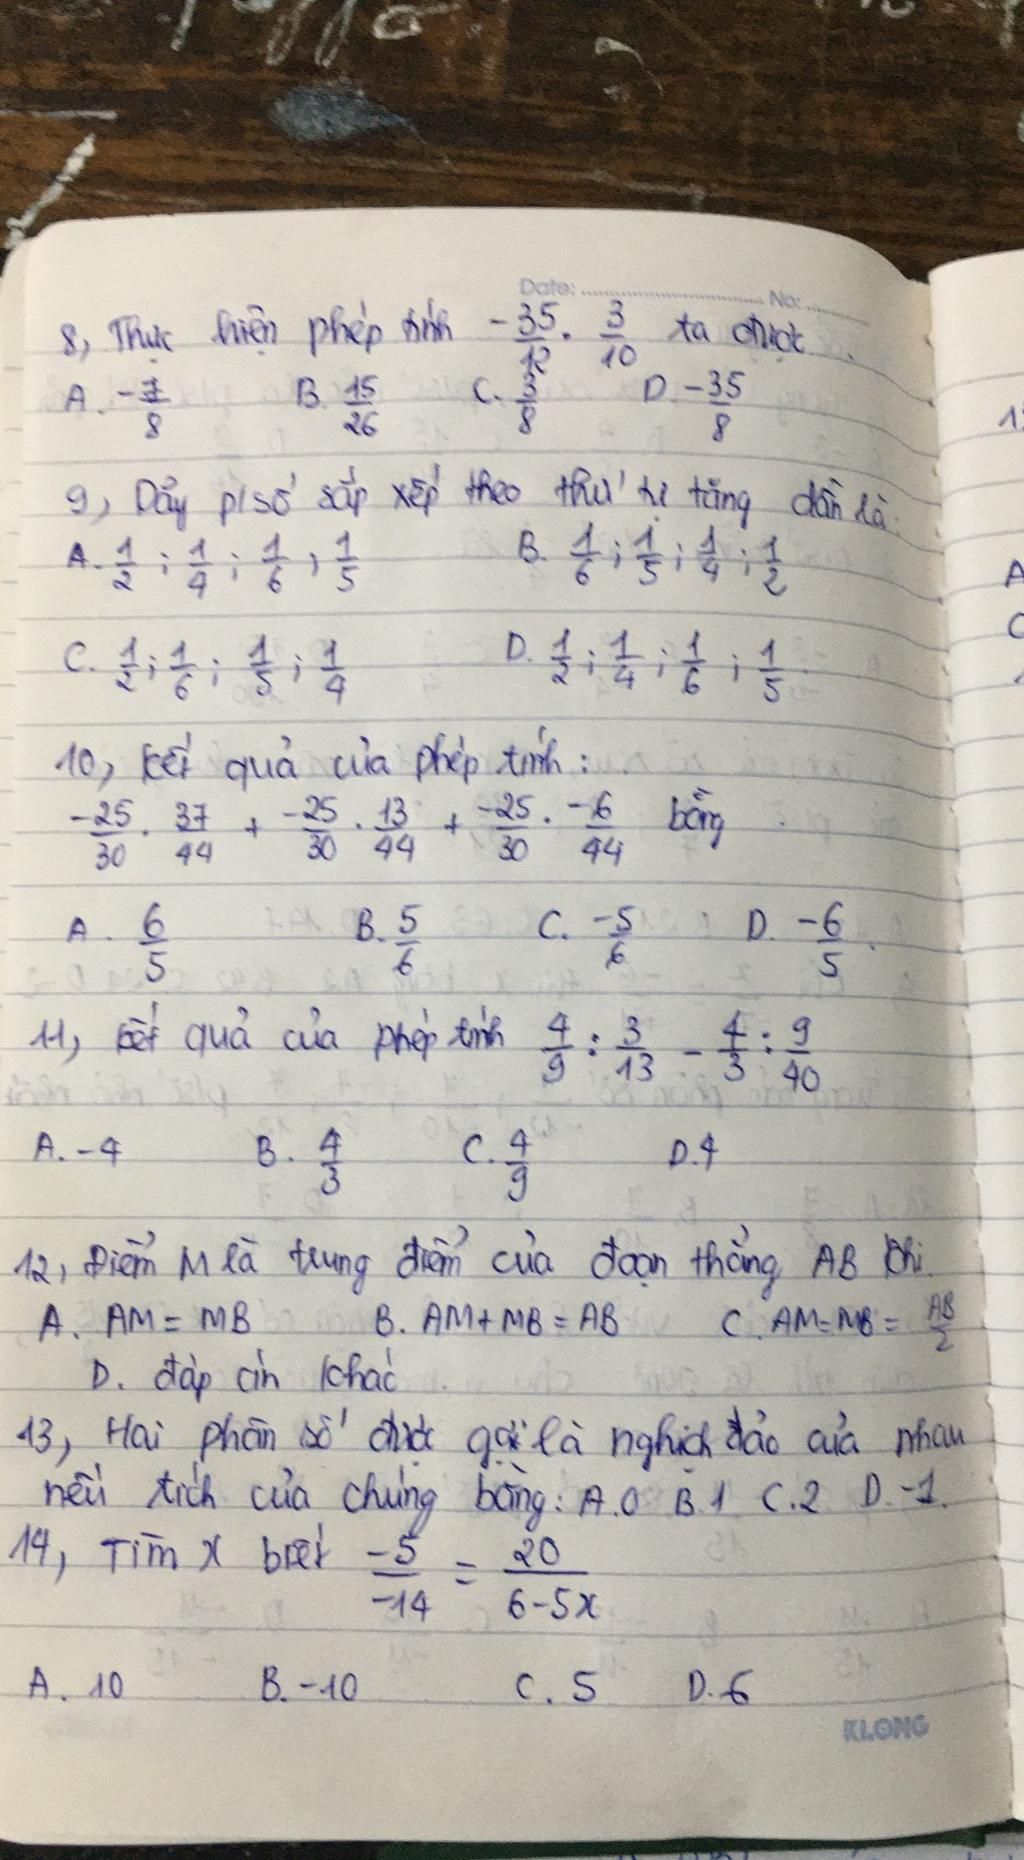 Date: ........ No: ........
8, Thực hiện phép tính -35/12 . 3/10 ta được
A. -7/8 B. 15/26 C. 3/8 D. -35/8
9, Dẫy p/số sắp xếp theo thứ tự tăng dần là:
A. 1/2 ; 1/4 ; 1/6 ; 1/5 B. 1/6 ; 1/5 ; 1/4 ; 1/2
C. 1/2 ; 1/6 ; 1/5 ; 1/4 D. 1/2 ; 1/4 ; 1/6 ; 1/5
10, Kết quả của phép tính :
-25/30 . 37/44 + -25/30 . 13/44 + -25/30 . -6/44 bằng
A. 6/5 B. 5/6 C. -5/6 D. -6/5
11, kết quả của phép tính 4/9 : 3/13 - 4/3 : 9/40
A. -4 B. 4/3 C. 4/9 D. 4
12, Điểm M là trung điểm của đoạn thẳng AB khi
A. AM = MB B. AM+MB = AB C. AM=MB = AB/2
D. đáp án khác
13, Hai phân số được gọi là nghịch đảo của nhau
nếu tích của chúng bằng: A. 0 B. 1 C. 2 D. -1.
14, Tìm x biết -5/-14 = 20/6-5x
A. 10 B. -10 C. 5 D. 6
KLONG